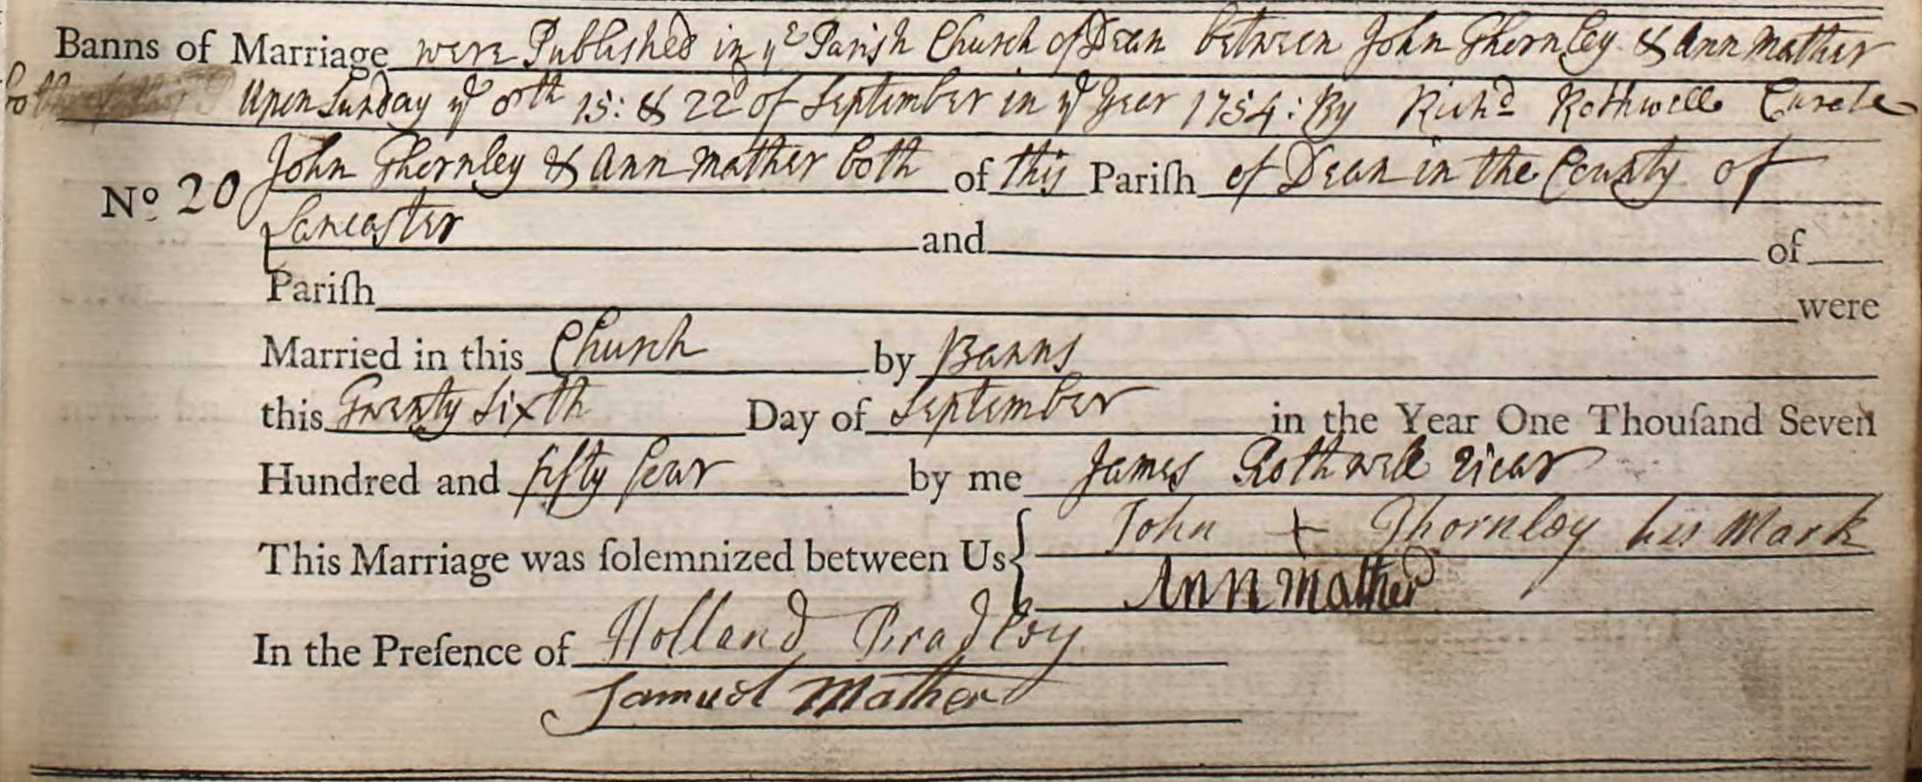 Banns of Marriage were Published in yᵉ Parish Church of Dean between John Thornley & Ann Mather
both of this P Upon Sunday yᵉ 8th 15: & 22ᵈ of September in yᵉ Year 1754: By Richᵈ Rothwell Curate
Nº 20 John Thornley & Ann Mather both of this Pariſh of Dean in the County of
Lancaster and of
Pariſh were
Married in this Church by Banns
this Twenty Sixth Day of September in the Year One Thouſand Seven
Hundred and fifty four by me James Rothwell Vicar
This Marriage was ſolemnized between Us { John + Thornley his Mark
Ann Mather
In the Preſence of Holland Bradley
Samuel Mather